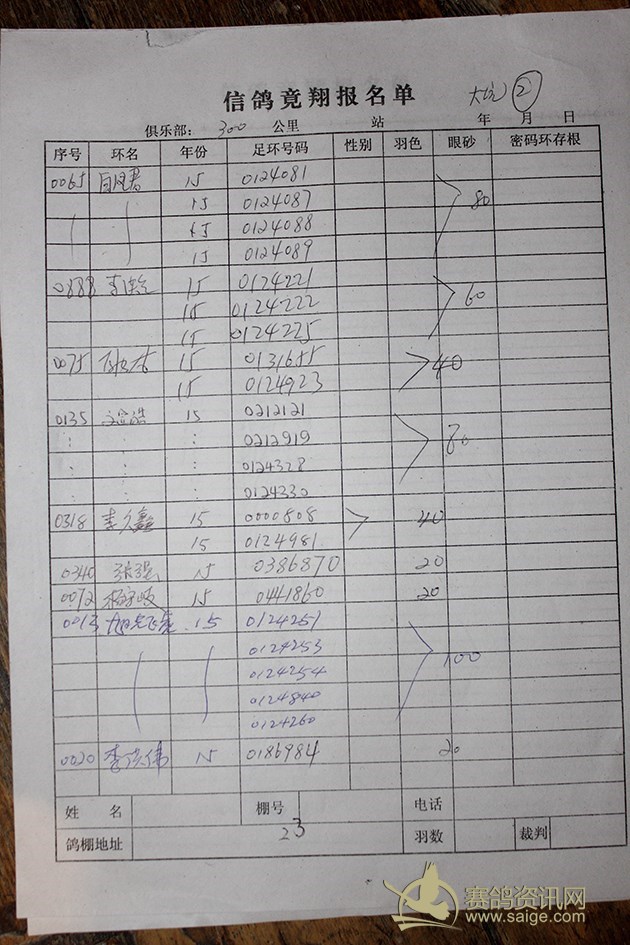 信鸽竟翔报名单
②
俱乐部： 300 公里 站 年 月 日
序号 环名 年份 足环号码 性别 羽色 眼砂 密码环存根
0065 15 0124081
15 0124087 80
15 0124088
15 0124089
0888 15 0124221
15 0124222 60
15 0124225
0075 15 0131655 40
15 0124923
0135 15 0212121
: : : 0212919 80
: : : 0124328
: : : 0124330
0318 李久鑫 15 0000808 40
15 0124981
0340 张强 15 0386870 20
0072 15 0441860 20
0013 15 0124251
0124253 100
0124254
0124840
0124260
0020 李洪伟 15 0186984 20
姓 名 棚号 电话
鸽棚地址 23 羽数 裁判
赛鸽资讯网
www.saige.com